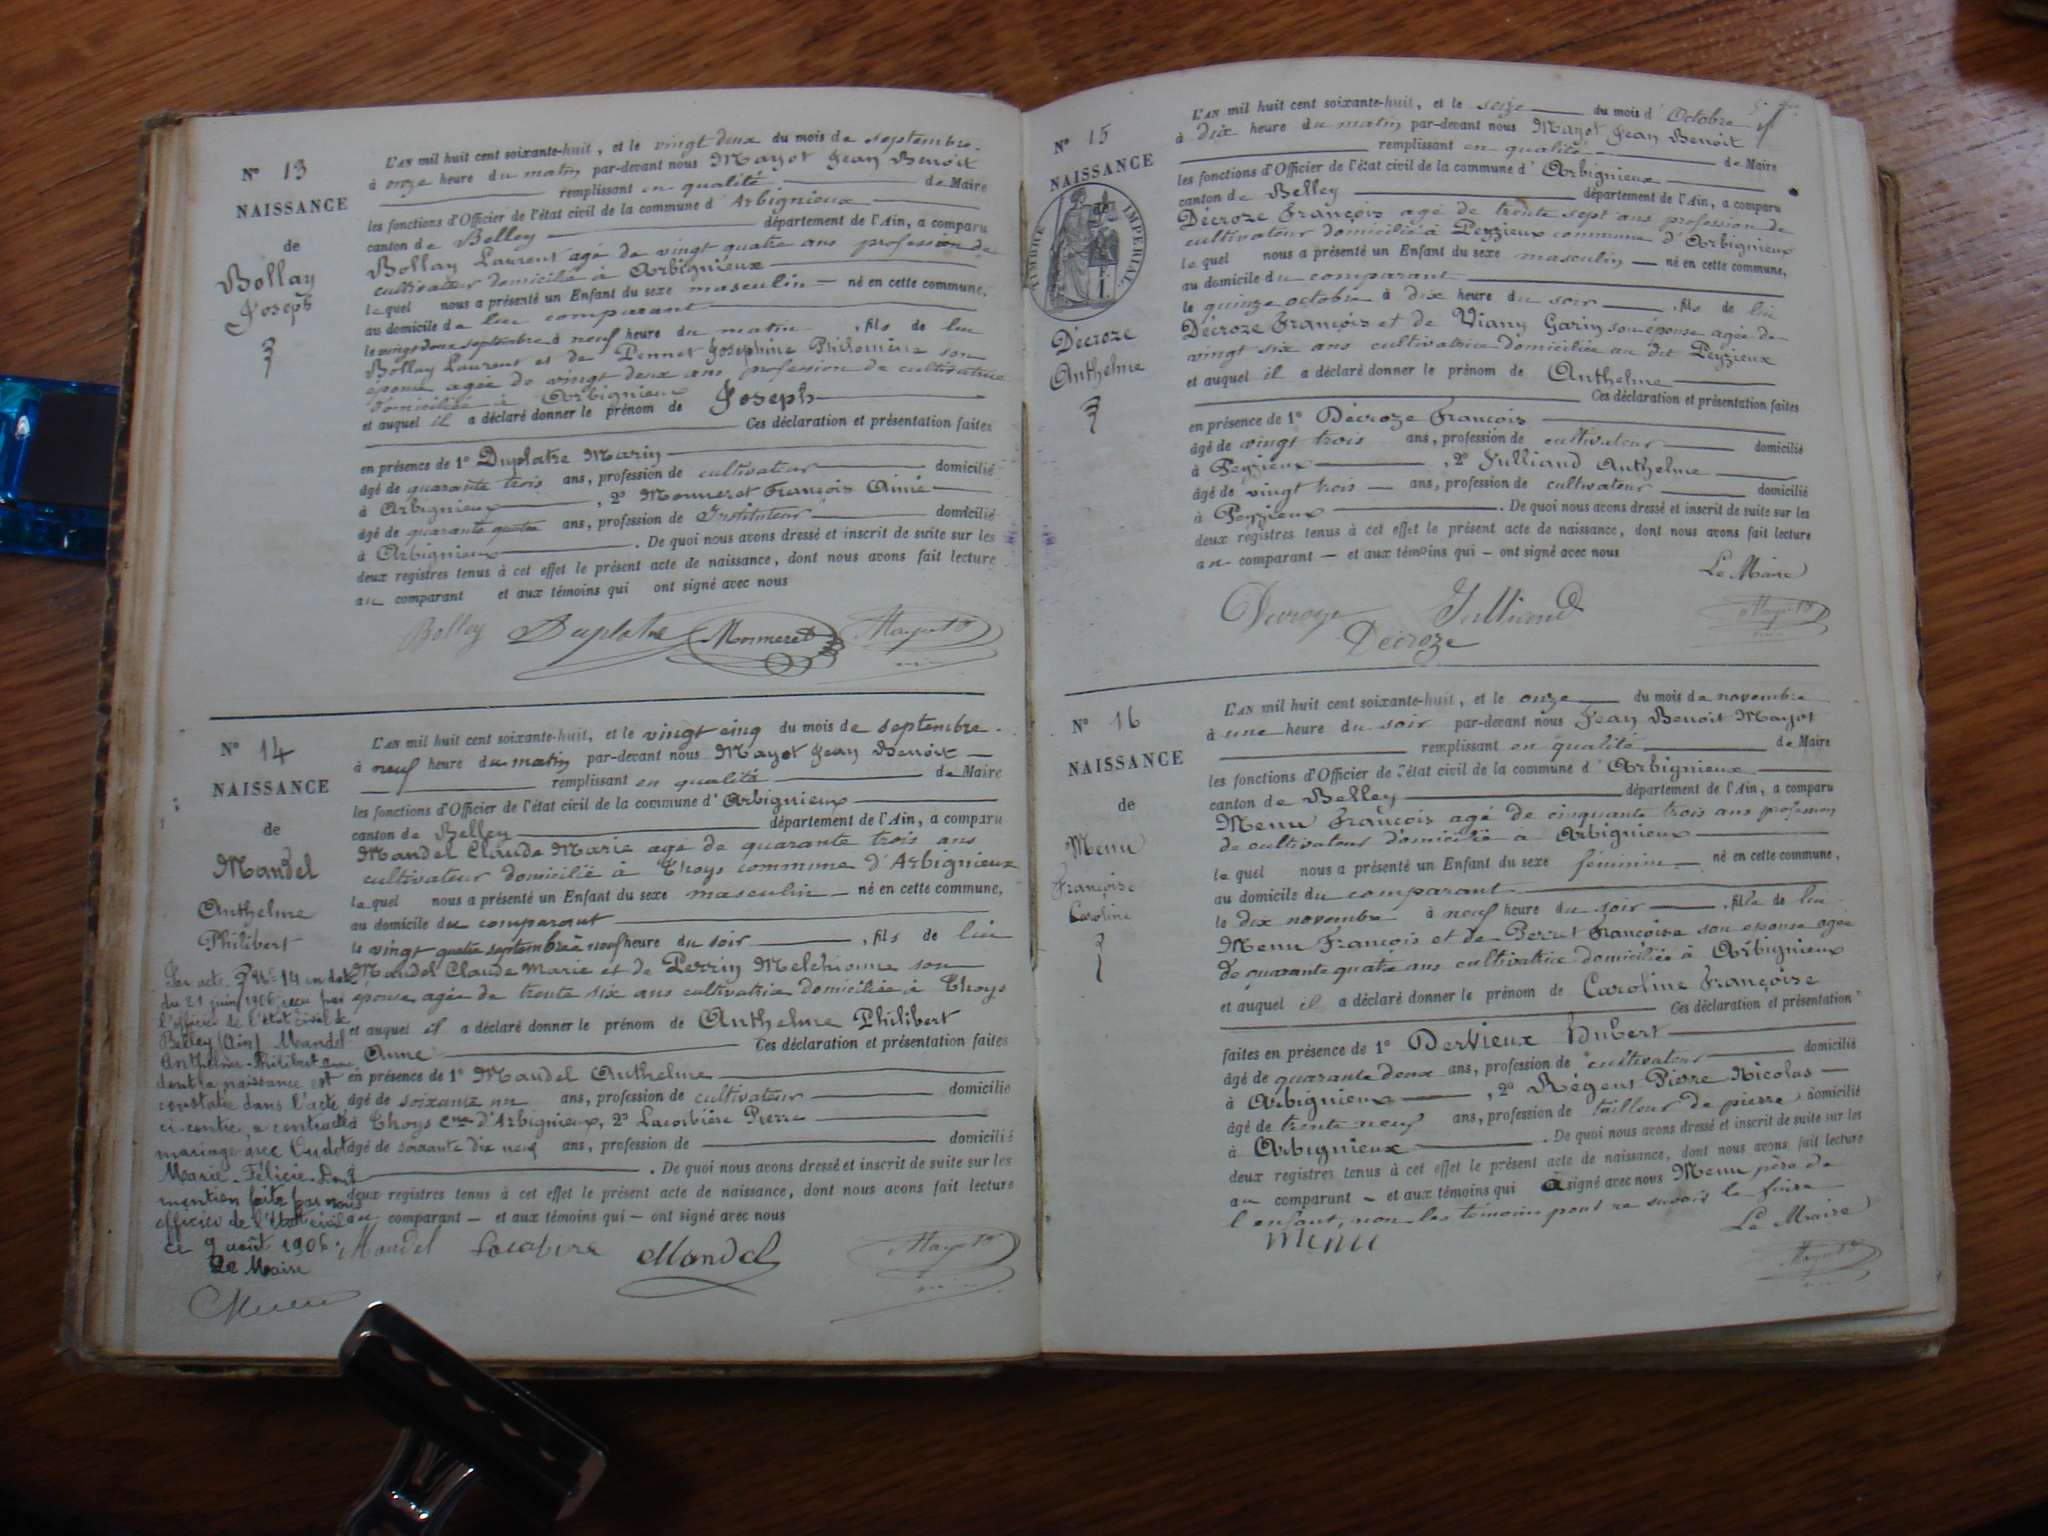 Nº 13
NAISSANCE
de
Bollay
Joseph
L'AN mil huit cent soixante-huit, et le vingt deux du mois de septembre
à onze heure du matin par-devant nous Mayot Jean Benoit
remplissant en qualité de Maire
les fonctions d'Officier de l'état civil de la commune d'Arbignieux
canton de Belley département de l'Ain, a comparu
Bollay Laurent agé de vingt quatre ans profession de
cultivateur domicilié à Arbignieux
lequel nous a présenté un Enfant du sexe masculin né en cette commune,
au domicile de lui comparant
le vingt deux septembre à neuf heure du matin, fils de lui
Bollay Laurent et de Pennet Josephine Philomène son
épouse agée de vingt deux ans profession de cultivatrice
domiciliée à Arbignieux
et auquel il a déclaré donner le prénom de Joseph
Ces déclaration et présentation faites
en présence de 1º Duplatre Marin
âgé de quarante trois ans, profession de cultivateur domicilié
à Arbignieux, 2º Monneret François Aimé
âgé de quarante quatre ans, profession de Instituteur domicilié
à Arbignieux. De quoi nous avons dressé et inscrit de suite sur les
deux registres tenus à cet effet le présent acte de naissance, dont nous avons fait lecture
au comparant et aux témoins qui ont signé avec nous
Bolley Duplatre Monneret Mayot
Nº 14
NAISSANCE
de
Mandel
Anthelme
Philibert
L'AN mil huit cent soixante-huit, et le vingt cinq du mois de septembre
à neuf heure du matin par-devant nous Mayot Jean Benoit
remplissant en qualité de Maire
les fonctions d'Officier de l'état civil de la commune d'Arbignieux
canton de Belley département de l'Ain, a comparu
Mandel Claude Marie agé de quarante trois ans
cultivateur domicilié à Thoys commune d'Arbignieux
lequel nous a présenté un Enfant du sexe masculin né en cette commune,
au domicile du comparant
le vingt quatre septembre à neuf heure du soir, fils de lui
Mandel Claude Marie et de Perrin Melchionne son
épouse, agée de trente six ans cultivatrice domiciliée à Thoys
et auquel il a déclaré donner le prénom de Anthelme Philibert
Anne Ces déclaration et présentation faites
en présence de 1º Mandel Anthelme
âgé de soixante un ans, profession de cultivateur domicilié
à Thoys cne d'Arbignieux, 2º Lacorbière Pierre
âgé de soixante dix neuf ans, profession de domicilié
De quoi nous avons dressé et inscrit de suite sur les
deux registres tenus à cet effet le présent acte de naissance, dont nous avons fait lecture
au comparant et aux témoins qui ont signé avec nous
Mandel Mandel Mayot
Par acte Nº 14 en date
du 21 juin 1906 reçu par
l'officier de l'état civil de
Belley (Ain) Mandel
Anthelme-Philibert Anne
dont la naissance est
constatée dans l'acte
ci-contre, a contracté
mariage avec
Marie-Félicie. Dont
mention faite par nous
officier de l'état civil
ce 9 août 1906.
Le Maire
Nº 15
NAISSANCE
de
TIMBRE IMPERIAL
Décroze
Anthelme
L'AN mil huit cent soixante-huit, et le seize du mois d'Octobre
à dix heure du matin par-devant nous Mayot Jean Benoit
remplissant en qualité de Maire
les fonctions d'Officier de l'état civil de la commune d'Arbignieux
canton de Belley département de l'Ain, a comparu
Décroze François agé de trente sept ans profession de
cultivateur domicilié à Peyzieux commune d'Arbignieux
lequel nous a présenté un Enfant du sexe masculin né en cette commune,
au domicile du comparant
le quinze octobre à dix heure du soir, fils de lui
Décroze François et de Viany Garin son épouse agée de
vingt six ans cultivatrice domiciliée au dit Peyzieux
et auquel il a déclaré donner le prénom de Anthelme
Ces déclaration et présentation faites
en présence de 1º Décroze François
âgé de vingt trois ans, profession de cultivateur domicilié
à Peyzieux, 2º Julliand Anthelme
âgé de vingt trois ans, profession de cultivateur domicilié
à Peyzieux. De quoi nous avons dressé et inscrit de suite sur les
deux registres tenus à cet effet le présent acte de naissance, dont nous avons fait lecture
au comparant et aux témoins qui ont signé avec nous
Le Maire
Decroze Julliand Mayot
Décroze
Nº 16
NAISSANCE
de
Menu
Françoise
Caroline
L'AN mil huit cent soixante-huit, et le onze du mois de novembre
à une heure du soir par-devant nous Jean Benoit Mayot
remplissant en qualité de Maire
les fonctions d'Officier de l'état civil de la commune d'Arbignieux
canton de Belley département de l'Ain, a comparu
Menu François agé de cinquante trois ans profession
de cultivateur domicilié à Arbignieux
lequel nous a présenté un Enfant du sexe féminin né en cette commune,
au domicile du comparant
le dix novembre à neuf heure du soir, fille de lui
Menu François et de Perret Françoise son épouse agée
de quarante quatre ans cultivatrice domiciliée à Arbignieux
et auquel il a déclaré donner le prénom de Caroline Françoise
Ces déclaration et présentation
faites en présence de 1º Dervieux Hubert
âgé de quarante deux ans, profession de cultivateur domicilié
à Arbignieux, 2º Régent Pierre Nicolas
âgé de trente neuf ans, profession de tailleur de pierre domicilié
à Arbignieux. De quoi nous avons dressé et inscrit de suite sur les
deux registres tenus à cet effet le présent acte de naissance, dont nous avons fait lecture
au comparant et aux témoins qui a signé avec nous Menu père de
l'enfant, non les témoins pour ne savoir le faire
Le Maire
Menu Mayot